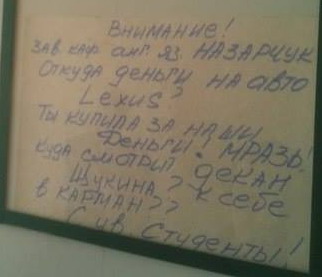 ВНИМАНИЕ!
ЗАВ. КАФ. АНГ. ЯЗ. НАЗАРЧУК
Откуда деньги НА АВТО
Lexus?
Ты купила за наши
деньги! МРАЗЬ!
Куда смотрит декан
Щукина? к себе
в карман??
С ув. Студенты!